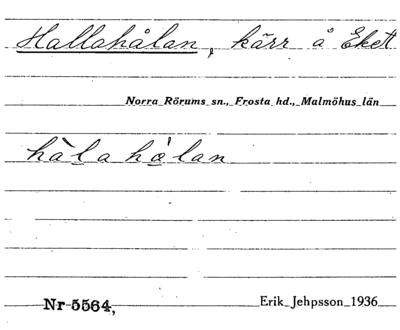 Hallahålan, kärr å Eket
Norra Rörums sn., Frosta hd., Malmöhus län
hàla hȯlan
Nr 5564,
Erik Jehpsson 1936